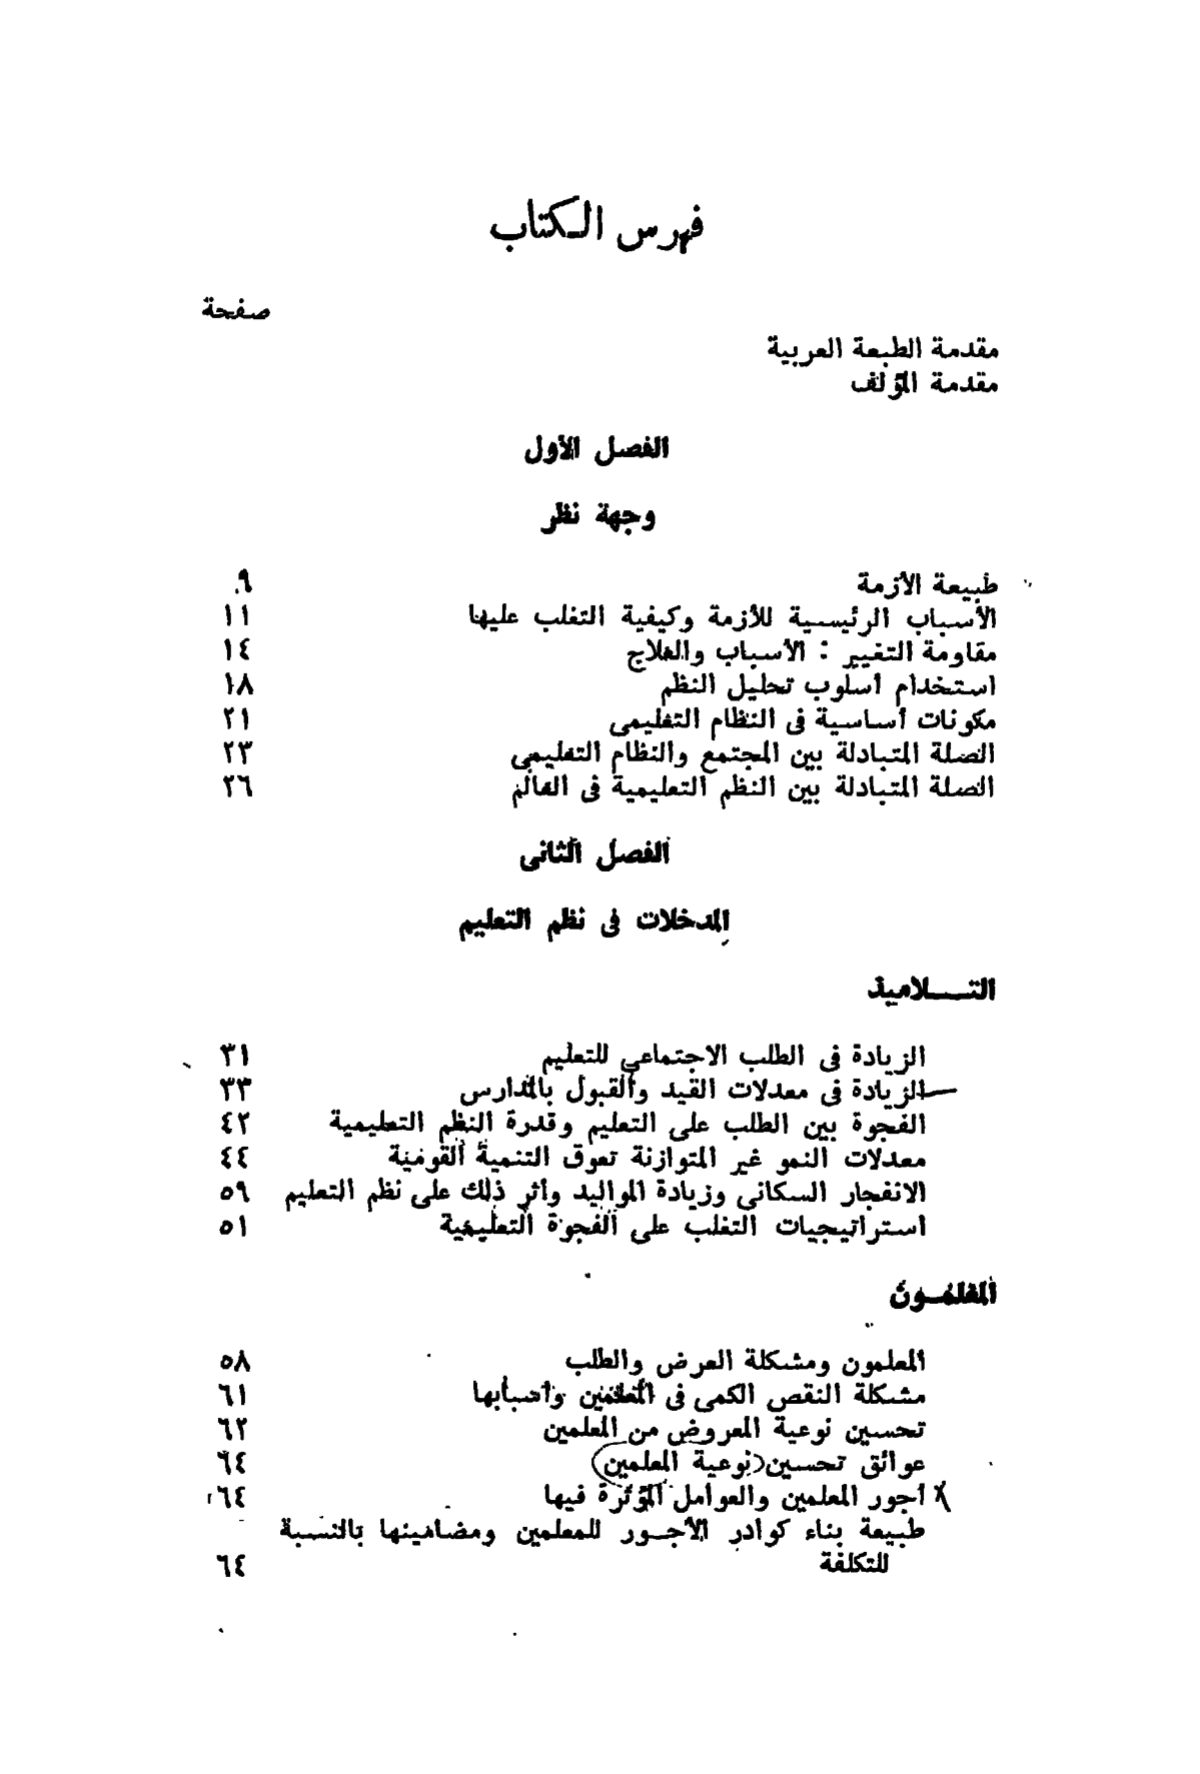 فهرس الكتاب
صفحة
مقدمة الطبعة العربية
مقدمة المؤلف
الفصل الأول
وجهة نظر
طبيعة الأزمة ٩
الأسباب الرئيسية للأزمة وكيفية التغلب عليها ١١
مقاومة التغيير : الأسباب والعلاج ١٤
استخدام أسلوب تحليل النظم ١٨
مكونات أساسية فى النظام التعليمى ٢١
الصلة المتبادلة بين المجتمع والنظام التعليمى ٢٣
الصلة المتبادلة بين النظم التعليمية فى العالم ٢٦
الفصل الثانى
المدخلات فى نظم التعليم
التـــلاميذ
الزيادة فى الطلب الاجتماعي للتعليم ٣١
الزيادة فى معدلات القيد والقبول بالمدارس ٣٣
الفجوة بين الطلب على التعليم وقدرة النظم التعليمية ٤٢
معدلات النمو غير المتوازنة تعوق التنمية القومية ٤٤
الانفجار السكانى وزيادة المواليد وأثر ذلك على نظم التعليم ٥٩
استراتيجيات التغلب على الفجوة التعليمية ٥١
المعلمــون
المعلمون ومشكلة العرض والطلب ٥٨
مشكلة النقص الكمى فى المعلمين وأسبابها ٦١
تحسين نوعية المعروض من المعلمين ٦٢
عوائق تحسين نوعية المعلمين ٦٤
أجور المعلمين والعوامل المؤثرة فيها ٦٤
طبيعة بناء كوادر الأجــور للمعلمين ومضامينها بالنسبة
للتكلفة ٦٤